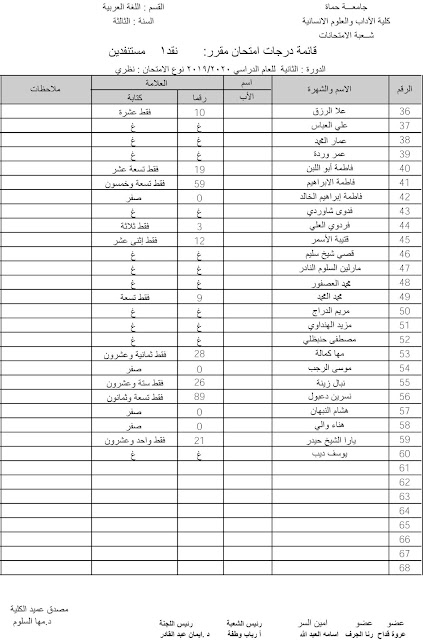 جامعـــة حماة
القسم : اللغة العربية
كلية الآداب والعلوم الانسانية
السنة : الثالثة
شـــعبة الامتحانات
قائمة درجات امتحان مقرر: نقد١ مستنفدين
الدورة : الثانية للعام الدراسي ٢٠١٩/٢٠٢٠ نوع الامتحان : نظري
الرقم الاسم والشهرة اسم الأب العلامة رقما كتابة ملاحظات
36 علا الرزق 10 فقط عشرة
37 علي العباس غ غ
38 عمار المحمد غ غ
39 عمر وردة غ غ
40 فاطمة أبو اللبن 19 فقط تسعة عشر
41 فاطمة الابراهيم 59 فقط تسعة وخمسون
42 فاطمة إبراهيم الخالد 0 صفر
43 فدوى شاوردي غ غ
44 فردوي العلي 3 فقط ثلاثة
45 قتيبة الأسمر 12 فقط إثنى عشر
46 قصي شيخ سليم غ غ
47 مارلين السلوم النادر غ غ
48 محمد العصفور غ غ
49 محمد المحمد 9 فقط تسعة
50 مريم الدراج غ غ
51 مزيد الهنداوي غ غ
52 مصطفى حنيظلي غ غ
53 مها كمالة 28 فقط ثمانية وعشرون
54 موسى الرجب 0 صفر
55 نبال زينة 26 فقط ستة وعشرون
56 نسرين دعبول 89 فقط تسعة وثمانون
57 هشام النبهان 0 صفر
58 هناء والي 0 صفر
59 يارا الشيخ حيدر 21 فقط واحد وعشرون
60 يوسف ديب غ غ
61
62
63
64
65
66
67
68
مصدق عميد الكلية
د.مها السلوم
عضو عضو امين السر رئيس الشعبة رئيس اللجنة
عروة قداح رنا الجرف اسامه العبد الله أ رباب وظفة د .ايمان عبد القادر